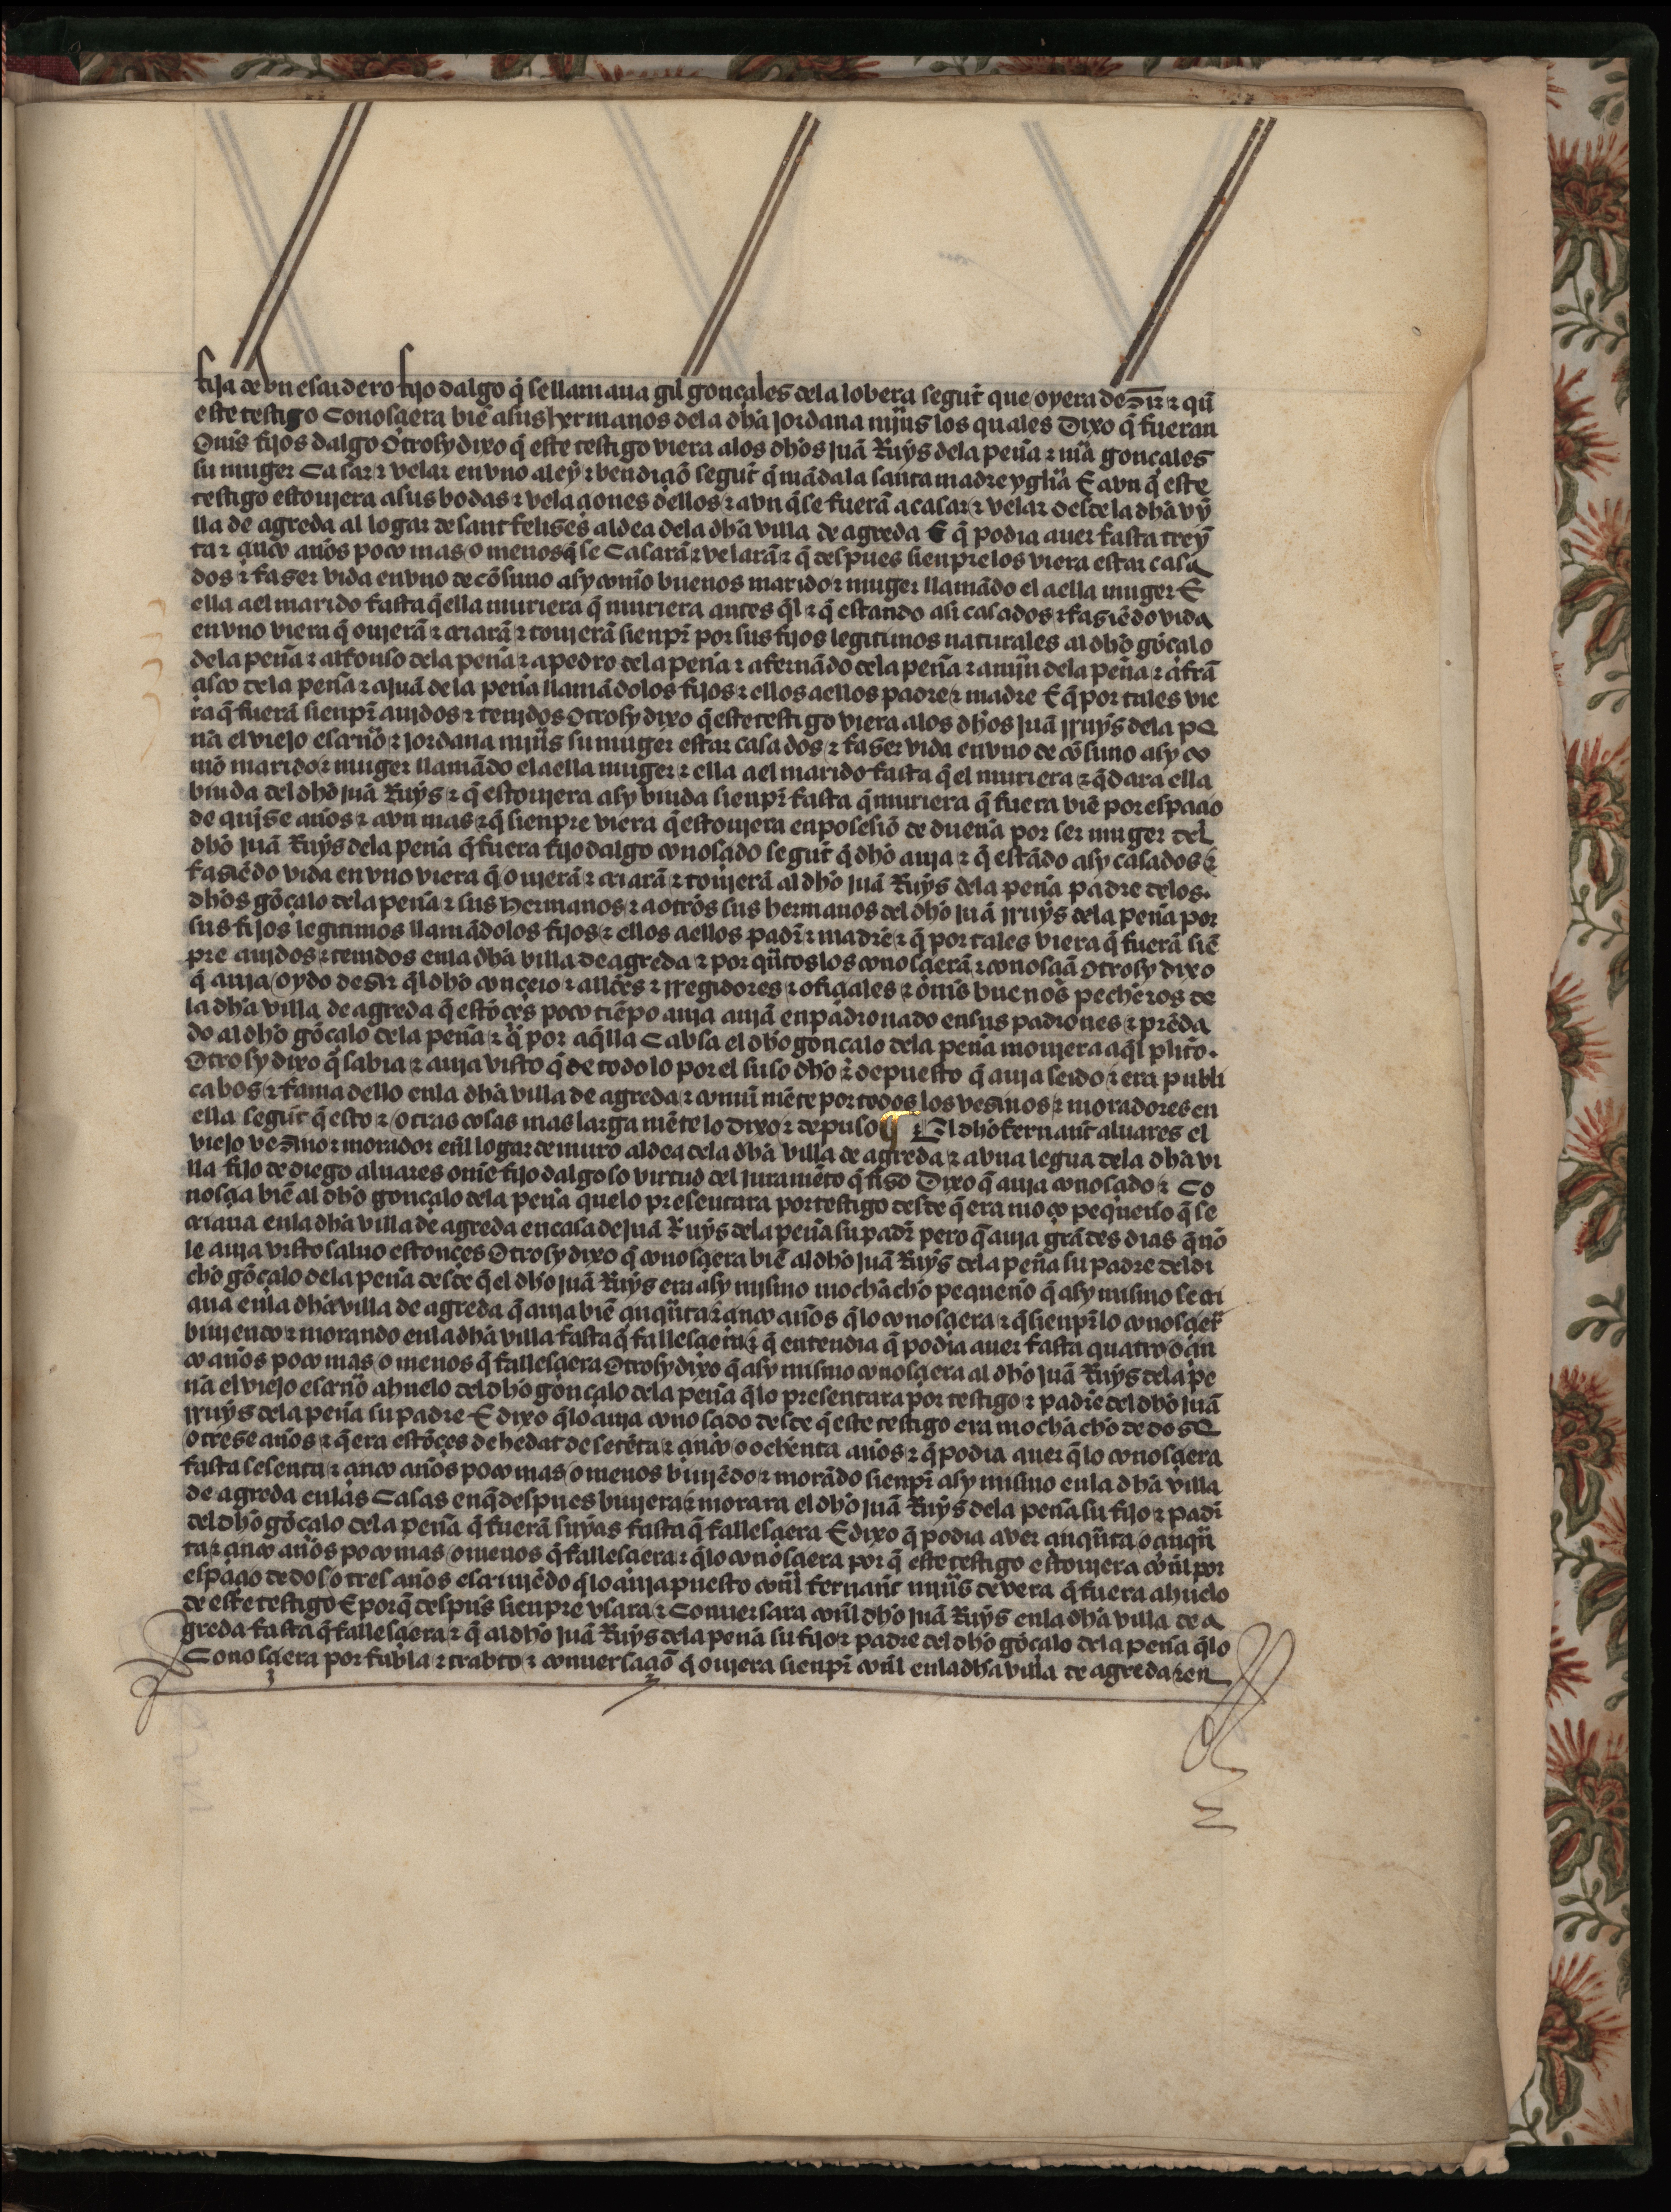 fija de vn escudero fijo dalgo q̃ se llamaua gil gonçales dela lobera segũt que oyera desir ⁊ qũ
este testigo Conosçiera biẽ a sus hermanos dela dh̃a jordana mjñs los quales Dixo q̃ fueran
Oñis fijos dalgo Otrosy dixo q̃ este testigo viera alos dh̃os juã Ruys dela peña ⁊ mã gonçales
su muger Casar ⁊ velar en vno a ley ⁊ bendiçiõ segũt q̃ mãda la santa madre ygl̃ia E avn q̃ este
testigo estoujera a sus bodas ⁊ velaçiones dellos ⁊ avn q̃ se fuerã a casar ⁊ velar desde la dh̃a vy̆
lla de agreda al logar de sant felises aldea dela dh̃a villa de agreda E q̃ podia auer fasta trey̆
ta ⁊ çinco años poco mas o menos q̃ se Casarã ⁊ velarã ⁊ q̃ despues sienpre los viera estar casa
dos ⁊ faser vida en vno de cõsuno asy com̃o buenos marido ⁊ muger llamãdo el a ella muger E
ella a el marido fasta q̃ ella muriera q̃ muriera antes q̃l ⁊ q̃ estando asi casados ⁊ fasiẽdo vida
en vno viera q̃ oujerã ⁊ criarã ⁊ toujerã sienpr̃ por sus fijos legitimos naturales al dh̃o gõçalo
dela peña ⁊ alfonso dela peña ⁊ a pedro dela peña ⁊ a fernãdo dela peña ⁊ a mjñ dela peña ⁊ a frã
çisco dela peña ⁊ a juã dela peña llamãdolos fijos ⁊ ellos a ellos padre ⁊ madre E q̃ por tales vie
ra q̃ fuerã sienpr̃ aujdos ⁊ tenjdos Otrosy dixo q̃ este testigo viera alos dh̃os juã rruys dela pe
ña el viejo escriũo ⁊ jordana mjñs su muger estar casados ⁊ faser vida en vno de cõsuno asy co
mo marido ⁊ muger llamãdo el a ella muger ⁊ ella a el marido fasta q̃ el muriera ⁊ q̃dara ella
biuda del dh̃o juã Ruys ⁊ q̃ estoujera asy biuda sienpr̃ fasta q̃ muriera q̃ fuera biẽ por espaçio
de qujse años ⁊ avn mas ⁊ q̃ sienpre viera q̃ estoujera en posesiõ de dueña por ser muger del
dh̃o juã Ruys dela peña q̃ fuera fijo dalgo conosçido segũt q̃ dh̃o auja ⁊ q̃ estãdo asy casados ⁊
fasiẽdo vida en vno viera q̃ oujerã ⁊ criarã ⁊ toujerã al dh̃o juã Ruys dela peña padre delos
dh̃os gõçalo dela peña ⁊ sus hermanos ⁊ a otros sus hermanos del dh̃o juã rruys dela peña por
sus fijos legitimos llamãdolos fijos ⁊ ellos a ellos padr̃ ⁊ madre ⁊ q̃ por tales viera q̃ fuerã siẽ
pre aujdos ⁊ tenidos enla dh̃a villa de agreda ⁊ por qũtos los conosçierã ⁊ conosçiã Otrosy dixo
q̃ auja oydo desir q̃l dh̃o conçeio ⁊ all̃des ⁊ rregidores ⁊ ofiçiales ⁊ oñis buenos pecheros de
la dh̃a villa de agreda q̃ estõçes poco tiẽpo auja aujã enpadronado en sus padrones ⁊ prẽda
do al dh̃o gõçalo dela peña ⁊ q̃ por aq̃lla Cabsa el dh̃o gonçalo dela peña moujera aq̃l plito.
Otrosy dixo q̃ sabia ⁊ auja visto q̃ de todo lo por el suso dh̃o ⁊ depuesto q̃ auja seido ⁊ era publi
ca bos ⁊ fama dello enla dh̃a villa de agreda ⁊ comũ mẽte por todos los vesinos ⁊ moradores en
ella segũt q̃ esto ⁊ otras cosas mas larga mẽte lo dixo ⁊ depuso ¶ El dh̃o fernant aluares el
viejo vesino ⁊ morador enl̃ logar de muro aldea dela dh̃a villa de agreda ⁊ a vna legua dela dh̃a vi
lla fijo de diego aluares om̃e fijo dalgo so virtud del juramẽto q̃ fiso Dixo q̃ auja conosçido ⁊ Co
nosçia biẽ al dh̃o gonçalo dela peña quelo presentara por testigo desde q̃ era moço pequeño q̃ se
criaua enla dh̃a villa de agreda en casa de juã Ruys dela peña su padr̃ pero q̃ auja grãdes dias q̃ no
le auja visto saluo estonçes Otrosy dixo q̃ conosçiera biẽ al dh̃o juã Ruys dela peña su padre del di
cho gõçalo dela peña desde q̃ el dh̃o juã Ruys era asy mismo mochacho pequeño q̃ asy mismo se cri
aua enla dh̃a villa de agreda q̃ auja biẽ çinqũta ⁊ çinco años q̃ lo conosçiera ⁊ q̃ sienpr̃ lo conosçier̃
biujendo ⁊ morando enla dh̃a villa fasta q̃ fallesçiera ⁊ q̃ entendia q̃ podia auer fasta quatro o çin
co años poco mas o menos q̃ fallesçiera Otrosy dixo q̃ asy mismo conosçiera al dh̃o juã Ruys dela pe
ña el viejo escriũo ahuelo del dh̃o gonçalo dela peña q̃ lo presentara por testigo ⁊ padre del dh̃o juã
rruys dela peña su padre E dixo q̃ lo auja conosçido desde q̃ este testigo era mochacho de dose
o trese años ⁊ q̃ era estõçes de hedat de setẽta ⁊ çinco o ochenta años ⁊ q̃ podia auer q̃ lo conosçiera
fasta sesenta ⁊ çinco años poco mas o menos biujẽdo ⁊ morãdo sienpr̃ asy mismo enla dh̃a villa
de agreda enlas Casas en q̃ despues biujera ⁊ morara el dh̃o juã Ruys dela peña su fijo ⁊ padr̃
del dh̃o gõçalo dela peña q̃ fuerã suyas fasta q̃ fallesçiera E dixo q̃ podia aver çinqũta o çinqũ
ta ⁊ çinco años poco mas o menos q̃ fallesçiera ⁊ q̃ lo conosçiera por q̃ este testigo estoujera conl̃ por
espaçio de dos o tres años escriujẽdo q̃ lo auja puesto conl̃ fernant mjñs de vera q̃ fuera ahuelo
de este testigo E por q̃ despũs sienpre vsara ⁊ Conuersara conl̃ dh̃o juã Ruys enla dh̃a villa de a
greda fasta q̃ fallesçiera ⁊ q̃ al dh̃o juã Ruys dela peña su fijo ⁊ padre del dh̃o gõçalo dela peña q̃ lo
Conosçiera por fabla ⁊ trabto ⁊ conuersaçiõ q̃ oujera sienpr̃ conl̃ enla dh̃a villa de agreda ⁊ en